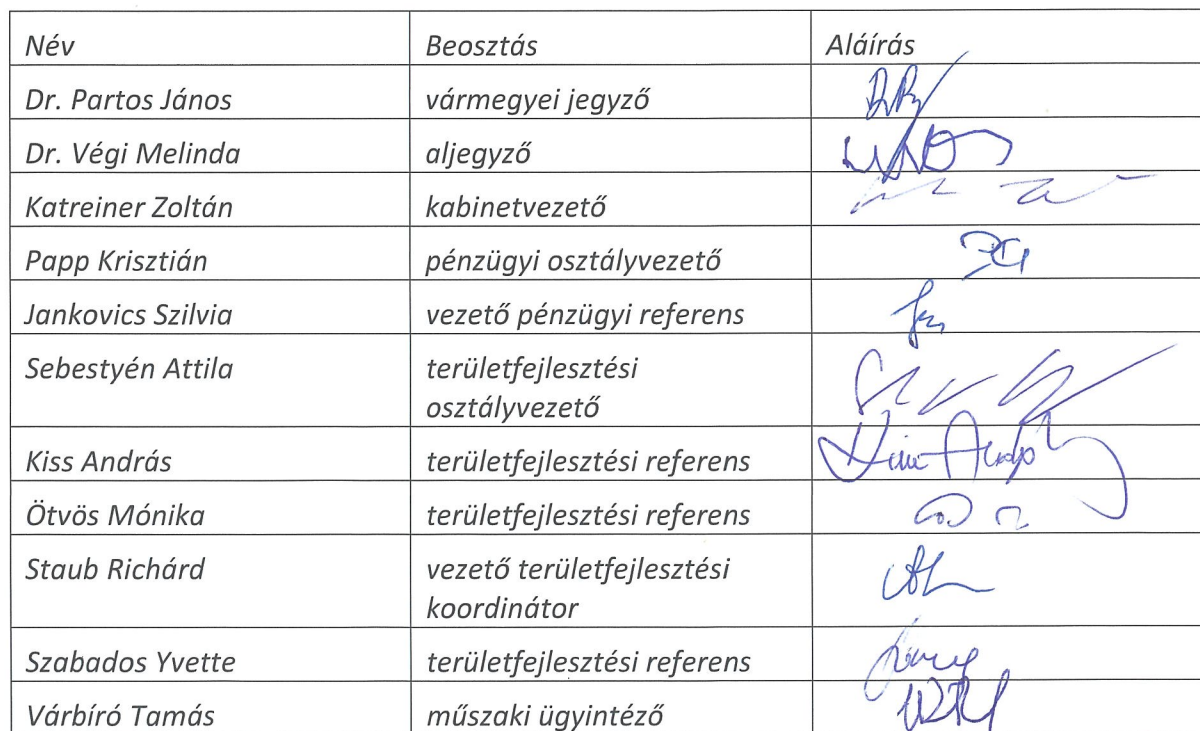 Név Beosztás Aláírás
Dr. Partos János vármegyei jegyző
Dr. Végi Melinda aljegyző
Katreiner Zoltán kabinetvezető
Papp Krisztián pénzügyi osztályvezető
Jankovics Szilvia vezető pénzügyi referens
Sebestyén Attila területfejlesztési
osztályvezető
Kiss András területfejlesztési referens
Ötvös Mónika területfejlesztési referens
Staub Richárd vezető területfejlesztési
koordinátor
Szabados Yvette területfejlesztési referens
Várbíró Tamás műszaki ügyintéző